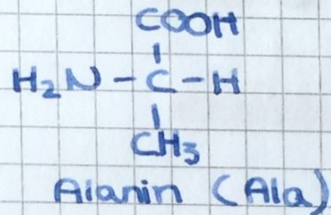 COOH
H₂N-C-H
CH₃
Alanin (Ala)